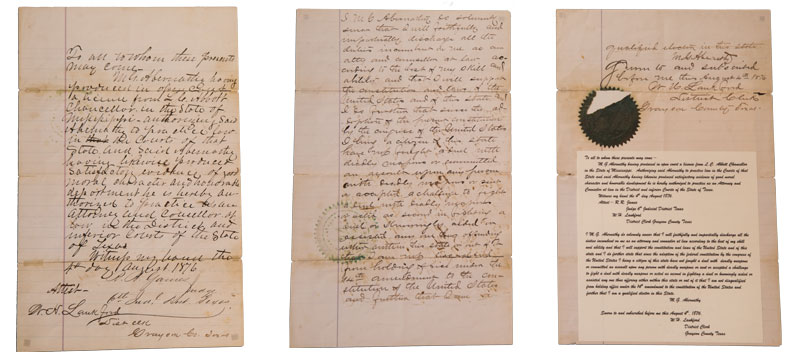 To all to whom these presents
may come
M.G. Abernathy having
produced in open Court
a license from L.C. Abbott
Chancellor in the State of
Mississippi - authorizing said
Abernathy to practice law
in the Courts of that
State and said Abernathy
having likewise produced
Satisfactory evidence of good
moral character and honorable
deportment he is hereby au-
thorized to practice as an
Attorney and Councellor at
law in the District and
inferior Courts of the State
of Texas
Witness my hand the
4th day of August 1876
Attest-
W.H. Lankford
Dist Clk
Grayson Co. Texas
I M G Abernathy do solemnly
swear that I will faithfully and
impartially discharge all the
duties incumbent on me as an
atto and counsellor at law ac-
cording to the best of my skill and
abilities and that I will support
the constitution and laws of the
United States and of this State
that since the ad-
option of the
by the congress of the United States
I being a citizen of this State
have not fought a duel with
deadly weapons
holding office under the
14th amendment to the con-
stitution of the United States
and further that I am a
qualified elector in this state
M.G. Abernathy
Sworn to and subscribed
before me this Aug 4th 1876
W H Lankford
District Clerk
Grayson County Texas
To all to whom these presents may come -
M.G. Abernathy having produced in open court a license from L.C. Abbott Chancellor
in the State of Mississippi. Authorizing said Abernathy to practice law in the Courts of that
State and said Abernathy having likewise produced satisfactory evidence of good moral
character and honorable deportment he is hereby authorized to practice as an Attorney and
Counselor at law in the District and inferior Courts of the State of Texas.
Witness my hand the 4th day August 1876
Attest - R.R. Gaines
Judge 6th Judicial District Texas
W.H. Lankford
District Clerk Grayson County Texas
I M.G. Abernathy do solemnly swear that I will faithfully and impartially discharge all the
duties incumbent on me as an attorney and counselor at law according to the best of my skill
and ability and that I will support the constitution and laws of the United States and of this
state and I do further state that since the adoption of the
the United States I being a citizen of this state have not fought a duel with deadly weapons
or committed an assault upon any person with deadly weapons or sent or accepted a challenge
to fight a duel with deadly weapons or acted as second in fighting a duel or knowingly aided or
assisted any one thus offending either within this state or out of it that I am not disqualified
from holding office under the 14th amendment to the constitution of the United States and
further that I am a qualified elector in this State.
M.G. Abernathy
Sworn to and subscribed before me this August 4th, 1876.
W.H. Lankford
District Clerk
Grayson County Texas